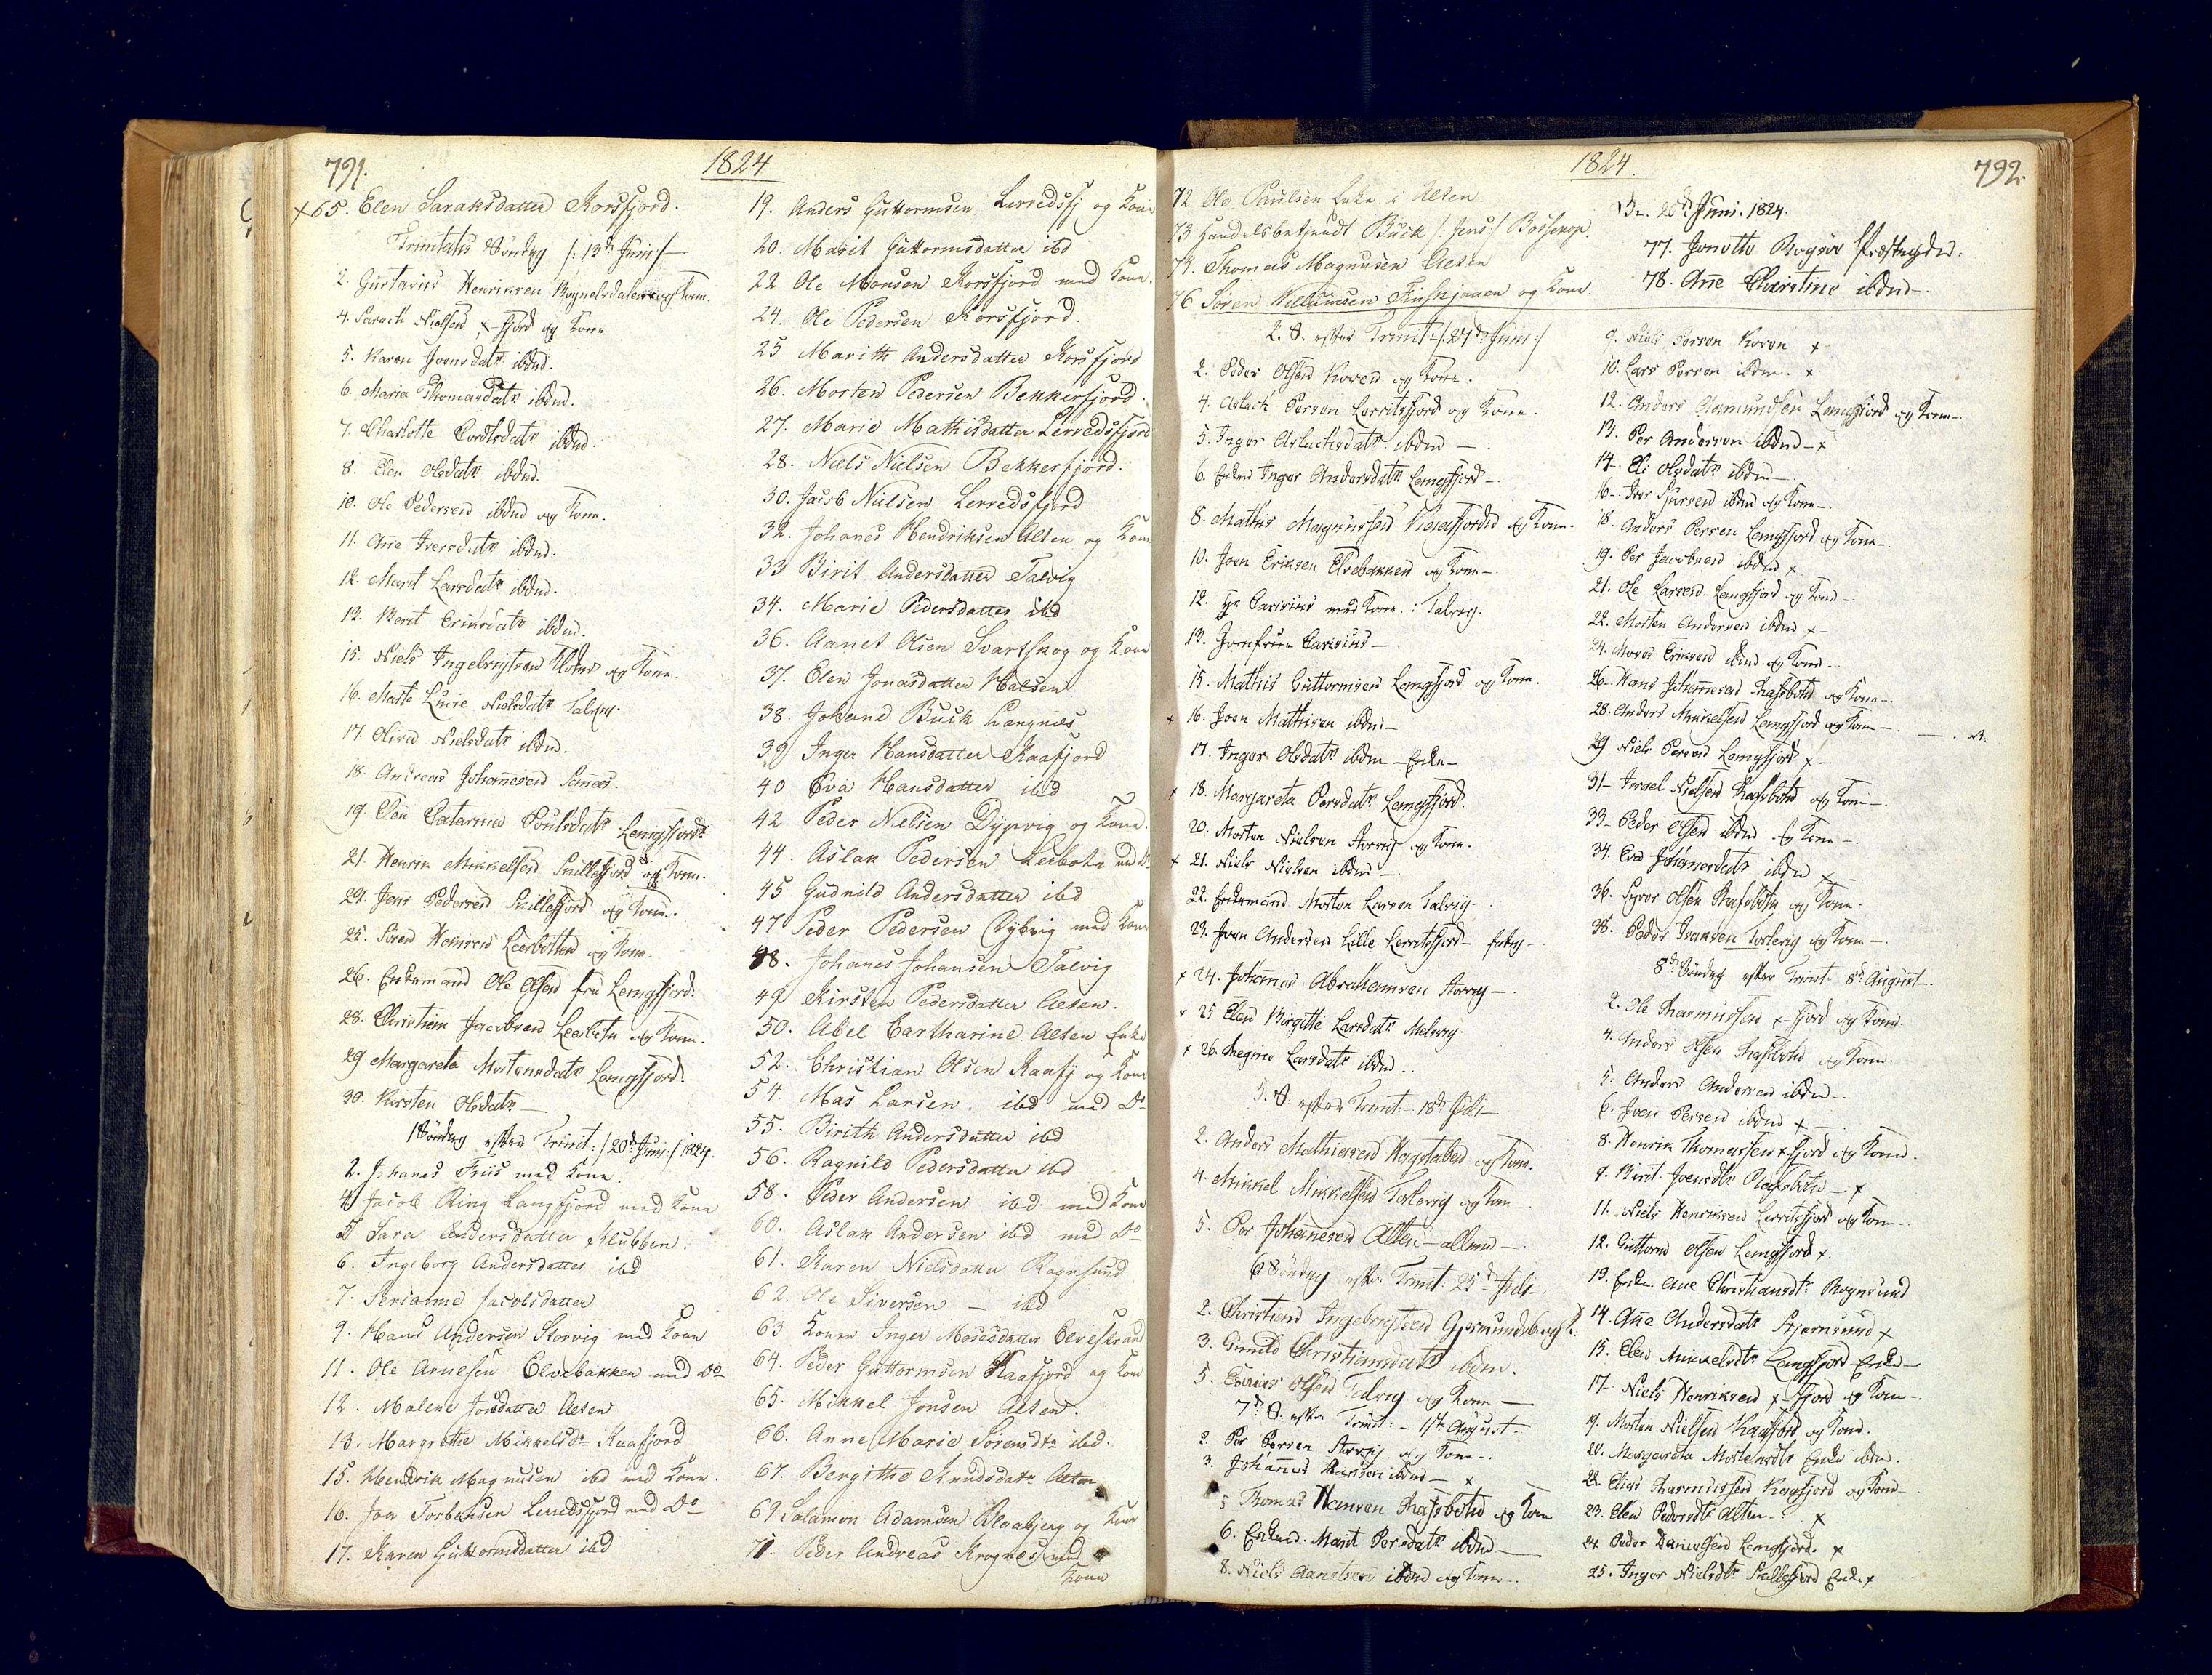 791.
1824
+65. Elen Saraksdatter Korsfjord.
Trinitatis Søndag /: 13de Junii /
2. Gustavus Henriksen Rognelvdalen og Kone.
4. Sarach Nielsen x-fjord og Kone
5. Karen Joensdatr ibdm.
6. Maria Thomasdatr ibdm.
7. Charlotte Cordtsdatr ibdm.
8. Elen Olsdatr ibdm.
10. Ole Pedersen ibdm og Kone.
11. Ane Iversdatr ibdm.
12. Marit Larsdatr ibdm.
13. Berit Eriksdatr ibdm.
15. Niels Ingebrigtsen og Kone.
16. Marte Nielsdatr Talvig.
17. Oliva Nielsdatr ibdm.
18. Andreas Johannesen
19. Elen Catarina Poulsdatr Langfjord.
21. Henrik Mikkelsen Skillefjord og Kone.
24. Jens Pedersen Skillefjord og Kone.
25. Søren Leerbotten og Kone.
26. Enkemand Ole Olsen fra Langfjord.
28. Christian Jacobsen Leerbotn og Kone.
29 Margareta Mortensdatr Langfjord.
30. Kirsten Olsdatr
1 Søndag efter Trinit: /20de Junii:/ 1824.
2. Johanes Friis med Kone.
4 Jacob Ring Langfjord med Kone
5 Sara Andersdatter Klubben.
6. Ingeborg Andersdatter ibd
7. Serianne Jacobsdatter
9. Hans Andersen Storvig med Kone
11. Ole Arnesen Elvebakken med Do
12. Malene Jonsdatter Alten
13. Margrethe Mikkelsdr Kaafjord
15. Hendrik Magnusen ibd med Kone.
16. Jon Torbensen Lerredsfjord med Do
17. Karen Guttormsdatter ibd
19. Anders Guttormsen Lerredsfj og Kone
20. Marit Guttormsdatter ibd
22 Ole Monsen Korsfjord med Kone.
24. Ole Pedersen Korsfjord.
25 Marith Andersdatter Korsfjord
26. Morten Pedersen Bekkerfjord.
27. Marie Mathisdatter Lerredsfjord
28. Niels Nielsen Bekkerfjord.
30. Jacob Nielsen Lerredsfjord
32. Johanes Hendriksen Alten og Kone
33 Birit Andersdatter Talvig
34. Marie Pedersdatter ibd
36. Aanet Olsen Svartskog og Kone
37. Elen Jonasdatter Halsen
38. Johane Buck Langnæs
39 Inger Hansdatter Kaafjord
40 Eva Hansdatter ibd
42 Peder Nielsen Dypvig og Kone.
44. Aslak Pedersen Leerbotn med Do
45 Gudnild Andersdatter ibd
47 Peder Pedersen Dybvig med Kone
48. Johanes Johansen Talvig
49. Kirsten Pedersdatter Alten.
50. Abel Cartharine Alten Enke
52. Christian Olsen Kaafj og Kone
54. Mas Larsen. ibd med Do
55. Birith Andersdatter ibd
56. Ragnild Pedersdatter ibd
58. Peder Andersen ibd med Kone
60. Aslak Andersen ibd med Do
61. Karen Nielsdatter Rognsund
62. Ole Siversen – ibd
63 Konen Inger Mosesdatter Elvestrand
64. Peder Guttormsen Kaafjord og Kone
65. Mikkel Jonsen Alten.
66. Anne Marie Sørensdr ibd.
67. Bergithe Knudsdatr Alten
69 Salamon Adamsen Blaabjerg og Kone
71. Peder Andreas Krognes med
Kone
1824.
792.
72 Ole Paulsen Enke i Alten.
73 Handelsbetjendt Buck /: Jens:/ Bossekop.
74. Thomas Magnusen Alten
76 Søren Willumsen Finskjanen og Kone.
20de Junii. 1824.
77. Jonetta
78. Ane Christine ibdm –
2. S. efter Trinit: /:27de Junii:/
2. Peder Olsen Koven og Kone.
4. Aslach Persen Lerritsfjord og Kone.
5. Inger Aslachsdatr ibdm –
6. Enken Inger Andersdatr Langfjord –
8. Mathis Magnussen og Kone.
10. Joen Eriksen Elvebakken og Kone –
12. Hr med Kone. : Talvig.
13. Jomfruen
15. Mathis Guttormsen Langfjord og Kone.
x 16. Joen Mathisen ibdm –
17. Inger Olsdatr ibdm – Enke –
x 18. Margareta Persdatr Langfjord.
20. Morten Nielsen Storvig og Kone.
x 21. Niels Nielsen ibdm –
22. Enkemand Morten Larsen Talvig.
23. Joen Andersen Lille Lerritsfjord –
x 24. Johannes Abrahamsen Storvig –
x 25 Elen Birgitte Larsdatr Melsvig.
x 26. Regine Larsdatr ibdm.
5. S. efter Trinit – 18de Juli –
2. Anders Mathiesen og Kone.
4. Mikkel Mikkelsen Toslevig og Kone –
5. Per Johannesen Alten – allene –
6 Søndag efter Trinit. 25de Juli –
2. Christian Ingebrigtsen
3. Gunild Christiansdatr ibdm.
5. Olsen Talvig og Kone –
7de S. efter Trinit: – 1ste August –
2. Per Persen Storvig og Kone –
3. Johannes Hansen ibdm – x
5 Thomas Hansen Rafsbotn og Kone
6. Enken. Marit Persdatr ibdm –
8. Niels Aanetsen ibdm og Kone –
9. Niels Persen Koven x
10. Lars Persen ibdm. x
12. Anders Aamundsen Langfjord og Kone –
13. Per Andersen ibdm – x
14. Eli Olsdatr ibdm –
16. Iver Sjursen ibdm og Kone –
18. Anders Persen Langfjord og Kone –
19. Per Jacobsen ibdm x
21. Ole Larsen Langfjord og Kone –
22. Morten Andersen ibdm x –
24. Moses Eriksen ibdm og Kone –
26. Hans Johannesen Rafsbotn og Kone –
28. Anders Mikkelsen Langfjord og Kone –
29 Niels Persen Langfjord x –
31 – Israel Nielsen Rafsbotn og Kone –
33 – Peder Olsen ibdm og Kone –
34. Eva Johannesdatr ibdm x –
36. Siver Olsen Rafsbotn og Kone.
38. Peder Iversen Toslevig og Kone –
8de Søndag efter Trinit. 8de August –
2. Ole Rasmussen x-fjord og Kone.
4. Anders Olsen Rafsbotn og Kone.
5. Anders Andersen ibdm –
6. Joen Persen ibdm x –
8. Henrik Thomassen x fjord og Kone.
9. Birit Joensdtr Rafsbotn – x
11. Niels Henriksen Lerritsfjord og Kone –
12. Guttorm Olsen Langfjord x.
13. Enke. Ane Christiansdr Rognsund
14. Ane Andersdatr Stjernsund x
15. Elen Mikkelsdtr Langfjord Enke –
17. Niels Henriksen x-fjord og Kone –
19. Morten Nielsen Kaafjord og Kone.
20. Margareta Mortensdtr Enke ibdm.
22. Elias Rasmussen Kaafjord og Kone –
23. Elen Pedersdtr Alten – x
24 Peder Danielsen Langfjord. x
25. Inger Nielsdtr Skillefjord Enke x